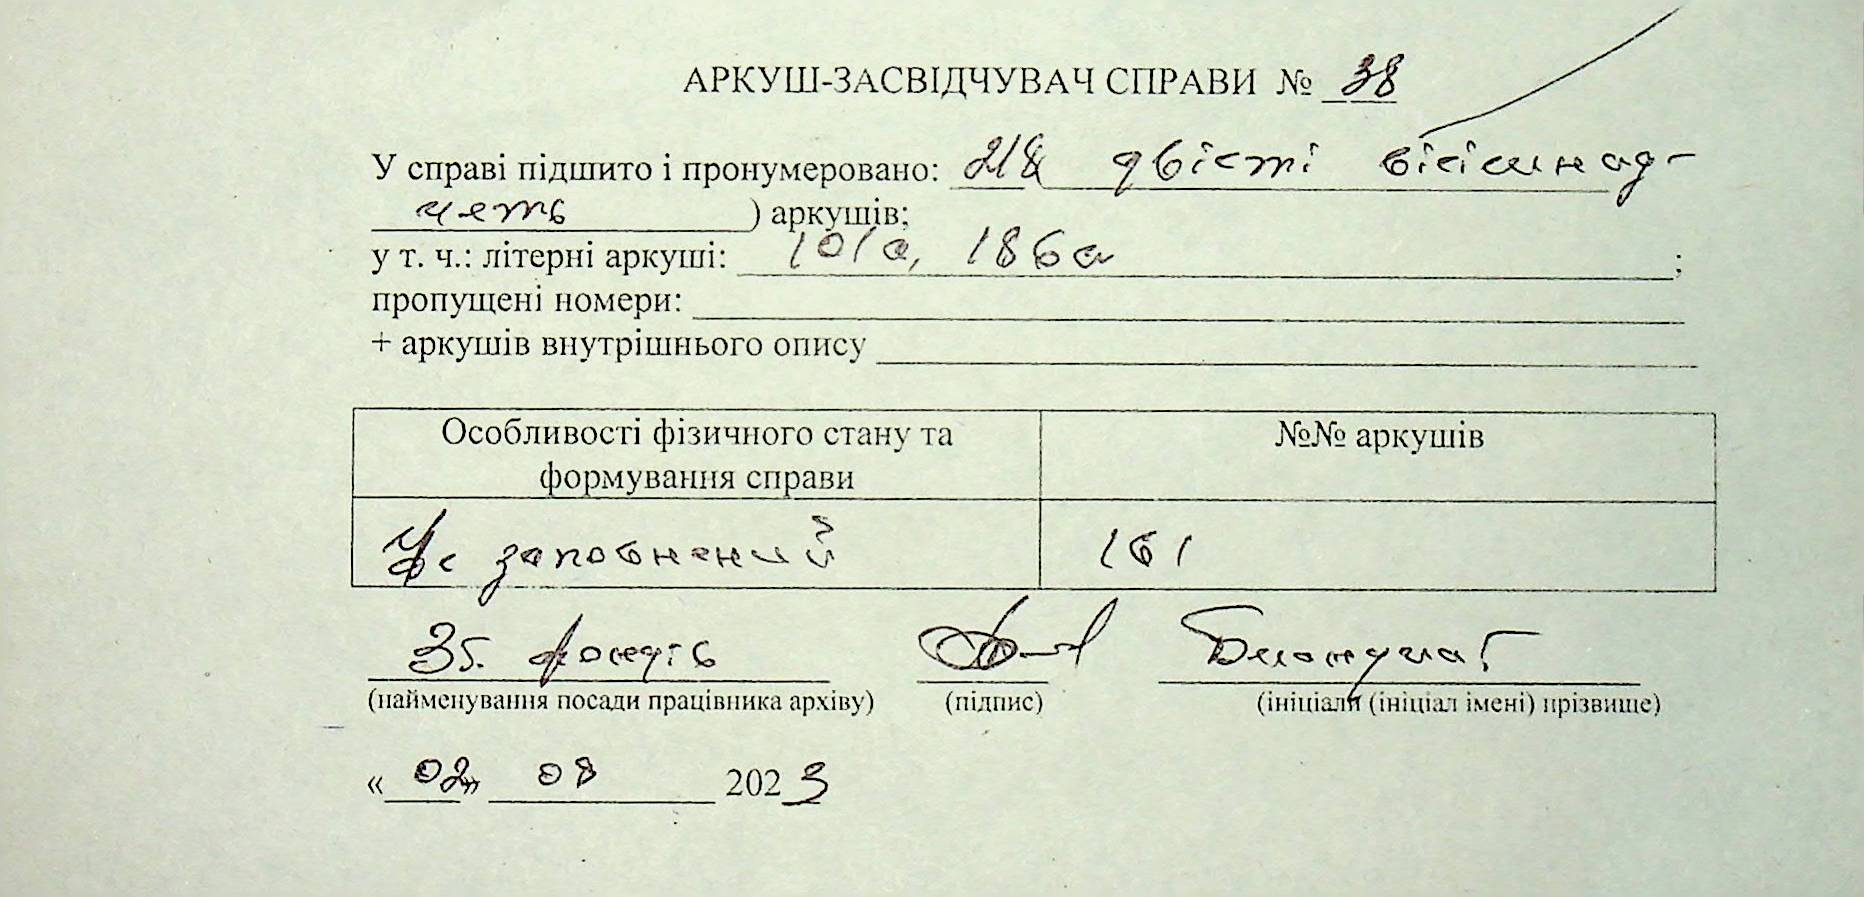 АРКУШ-ЗАСВІДЧУВАЧ СПРАВИ № 38
У справі підшито і пронумеровано: 218 двісті вісімнад-
цять ) аркушів;
у т. ч.: літерні аркуші: 101а, 186а ;
пропущені номери:
+ аркушів внутрішнього опису
Особливості фізичного стану та
формування справи
№№ аркушів
заповнений
161
Зб. фондів
(найменування посади працівника архіву) (підпис) (ініціали (ініціал імені) прізвище)
«02» 08 2023